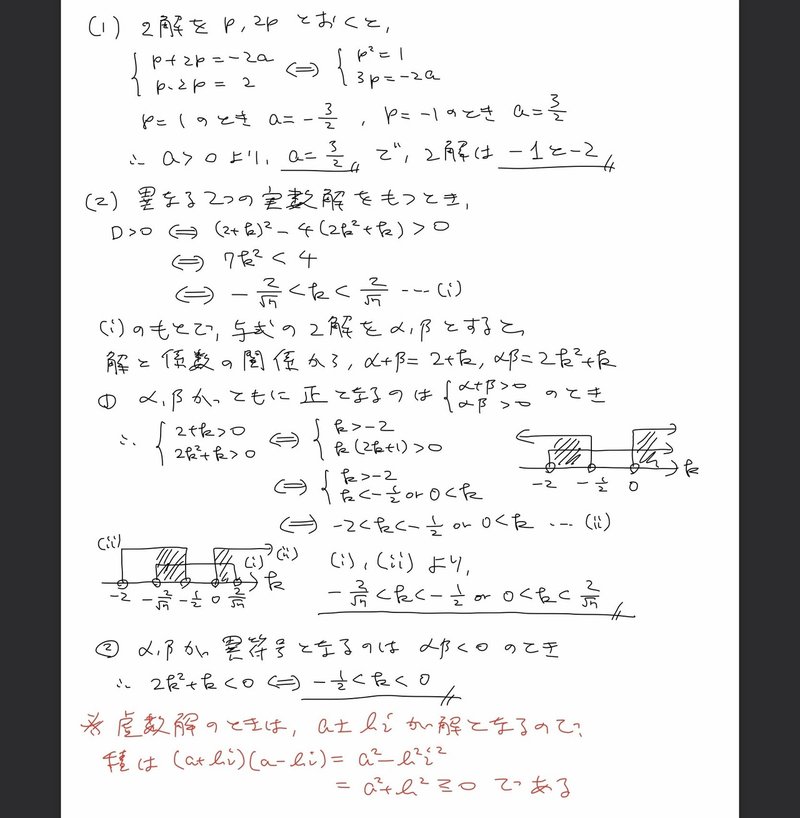 (1) 2解を p, 2p とおくと,
{ p+2p=-2a
p・2p= 2 ⇔ { p²=1
3p=-2a
p=1のとき a=-3/2 , p=-1のとき a=3/2
∴ a>0より, a=3/2 で, 2解は -1と-2
(2) 異なる2つの実数解をもつとき,
D>0 ⇔ (2+k)²-4(2k²+k)>0
⇔ 7k²<4
⇔ -2/√7<k<2/√7 …(i)
(i)のもとで, 与式の2解をα,βとすると,
解と係数の関係から, α+β=2+k, αβ=2k²+k
① α,βがともに正となるのは { α+β>0
αβ>0 のとき
∴ { 2+k>0
2k²+k>0 ⇔ { k>-2
k(2k+1)>0
-2 -1/2 0 k
⇔ { k>-2
k<-1/2 or 0<k
⇔ -2<k<-1/2 or 0<k …(ii)
(ii) (i) (ii) k
-2 -2/√7 -1/2 0 2/√7
(i), (ii)より,
-2/√7<k<-1/2 or 0<k<2/√7
② α,βが異符号となるのは αβ<0 のとき
∴ 2k²+k<0 ⇔ -1/2<k<0
※ 虚数解のときは, a±biが解となるので,
積は (a+bi)(a-bi)= a²-b²i²
= a²+b² ≧0 である